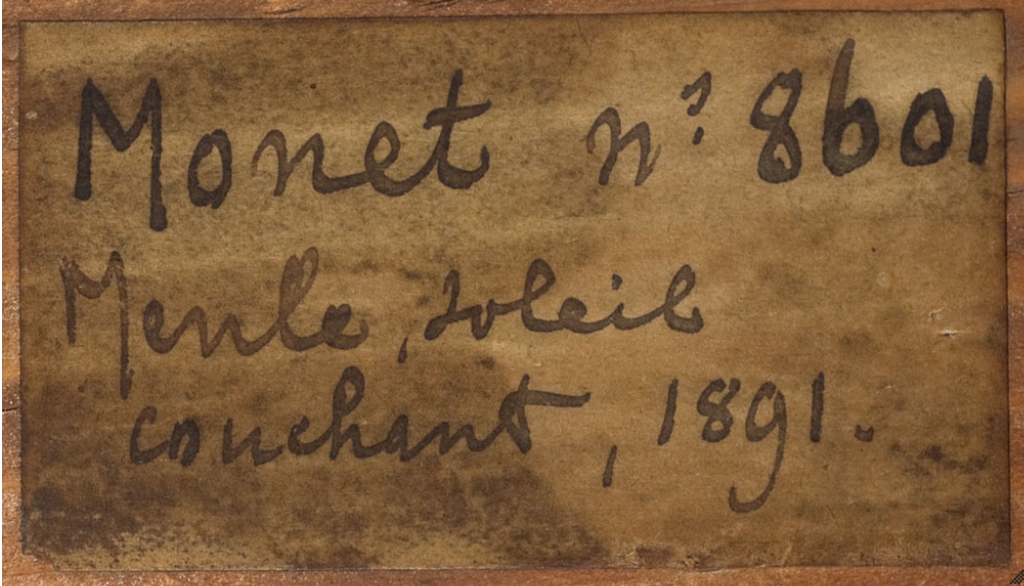 Monet n? 8601
Meule, soleil
couchant, 1891.